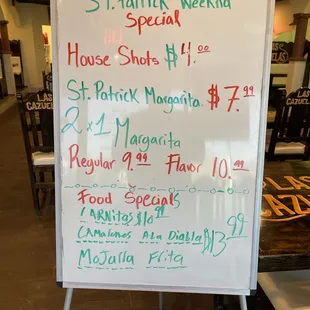 St. Patrick Weekend
Special
House Shots $4.00
St. Patrick Margarita $7.99
2x1 Margarita
Regular 9.99 Flavor 10.99
Food Specials
CARNitas $10.99
CAMaRONES A La DiablA $13.99
MoJaRRa FRita
LAS
CAZUEL
LAS
CAZUE
LAS
CAZUE